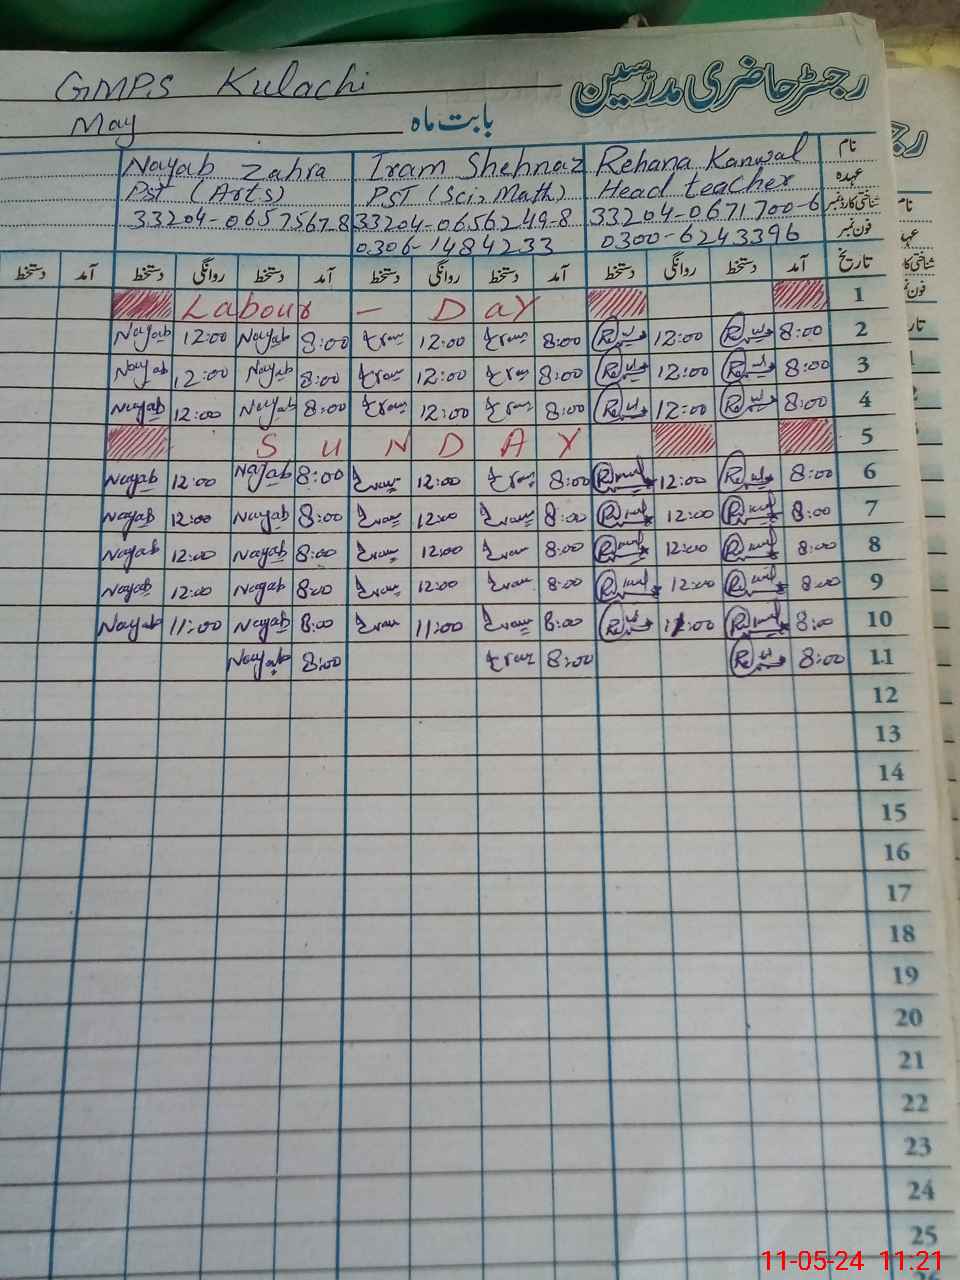 GMPS Kulachi رجسٹر حاضری مدرسین
May بابت ماہ
Nayab Zahra Iram Shehnaz Rehana Kanwal نام
PST (Arts) PST (Sci, Math) Head teacher عہدہ
33204-0657567-8 33204-0656249-8 33204-0671700-6 شناختی کارڈ نمبر
0306-1484233 0300-6243396 فون نمبر
دستخط آمد دستخط روانگی دستخط آمد دستخط روانگی دستخط آمد دستخط روانگی دستخط آمد تاریخ
Labour - Day 1
Nayab 12:00 Nayab 8:00 Iram 12:00 Iram 8:00 12:00 8:00 2
Nayab 12:00 Nayab 8:00 Iram 12:00 Iram 8:00 12:00 8:00 3
Nayab 12:00 Nayab 8:00 Iram 12:00 Iram 8:00 12:00 8:00 4
SUNDAY 5
Nayab 12:00 Nayab 8:00 Iram 12:00 Iram 8:00 12:00 8:00 6
Nayab 12:00 Nayab 8:00 Iram 12:00 Iram 8:00 12:00 8:00 7
Nayab 12:00 Nayab 8:00 Iram 12:00 Iram 8:00 12:00 8:00 8
Nayab 12:00 Nayab 8:00 Iram 12:00 Iram 8:00 12:00 8:00 9
Nayab 11:00 Nayab 8:00 Iram 11:00 Iram 8:00 11:00 8:00 10
Nayab 8:00 Iram 8:00 8:00 11
12
13
14
15
16
17
18
19
20
21
22
23
24
25
11-05-24 11:21